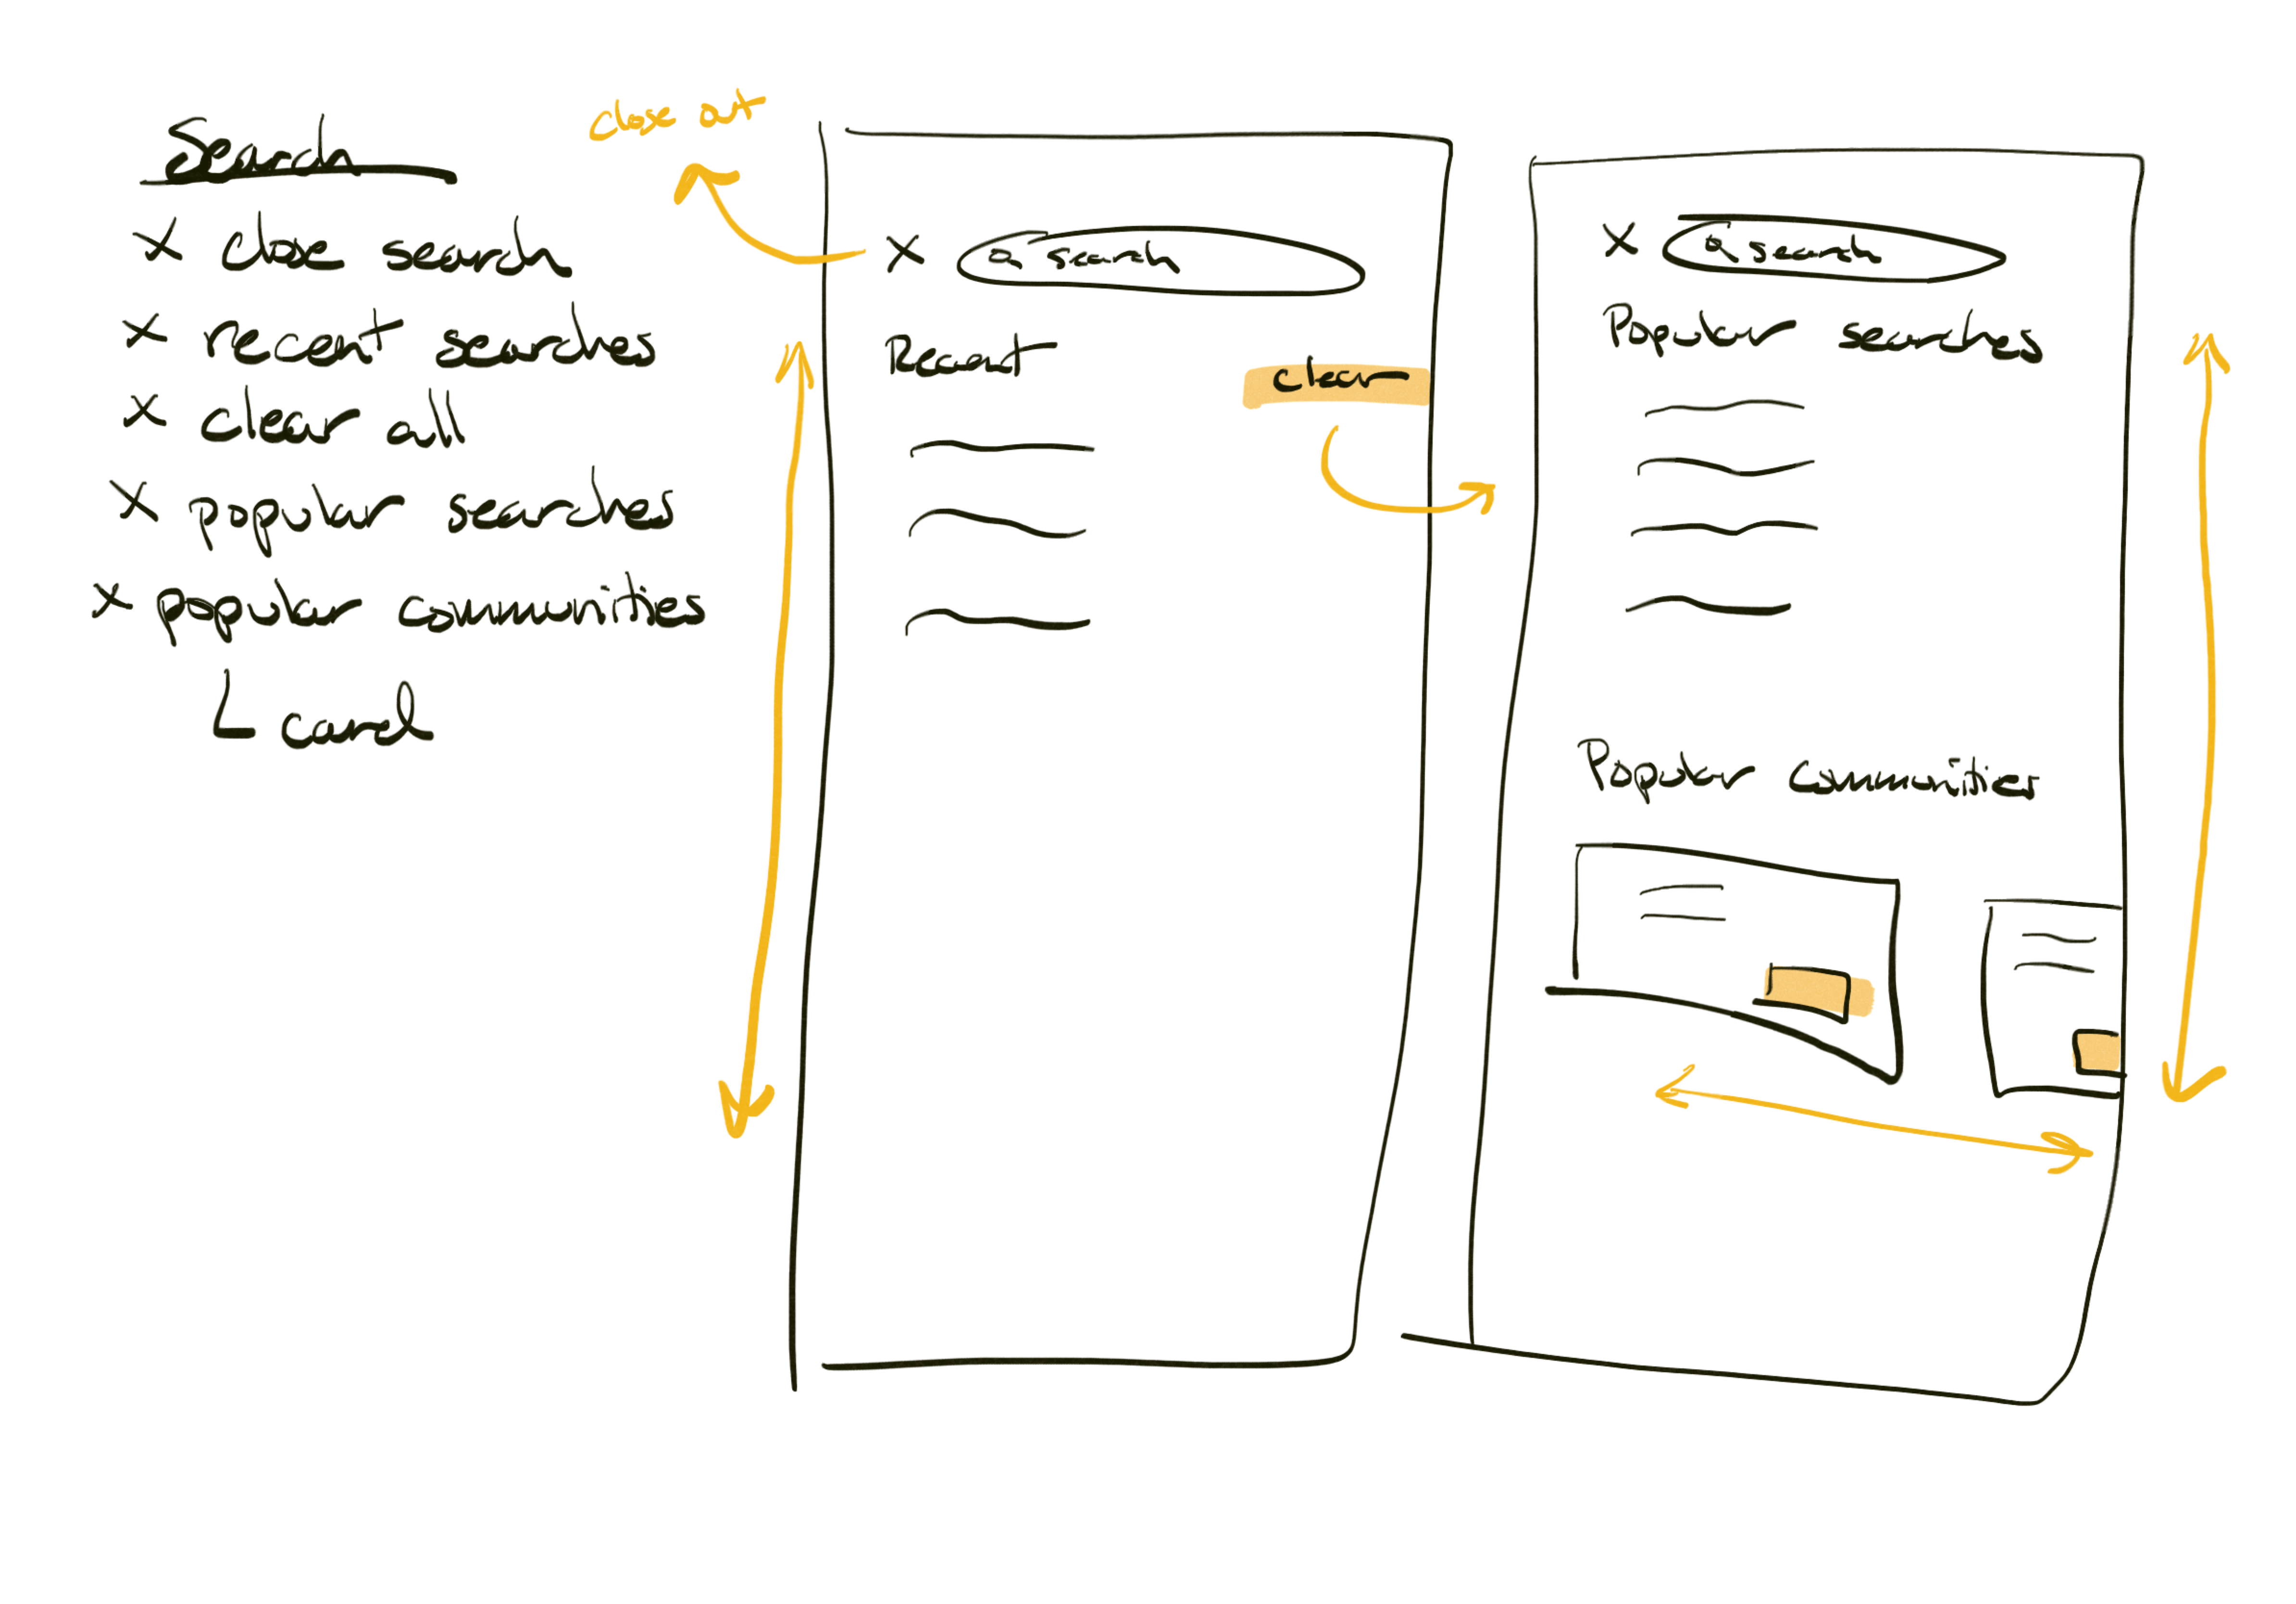 Search
x close search
x recent searches
x clear all
x popular searches
x popular communities
card
close out
x search
Recent
clear
x search
Popular searches
Popular communities